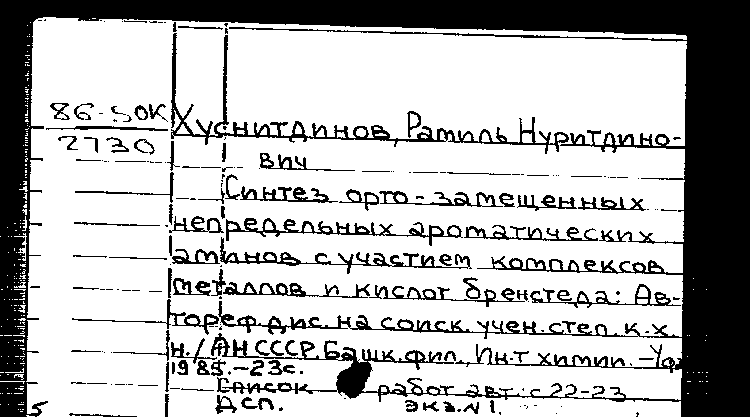 86-5ОК Хуснитдинов, Рамиль Нуритдино-
2730
вич
Синтез орто-замещенных
непредельных ароматических
аминов с участием комплексов
металлов и кислот Бренстеда: Ав-
тореф.дис. на соиск. учен. степ. к.х.
н./АН СССР. Башк. фил., Ин-т химии. -Уфа
1985.-23с.
Список работ авт.: с 22-23
Дсп. экз. N1.
5